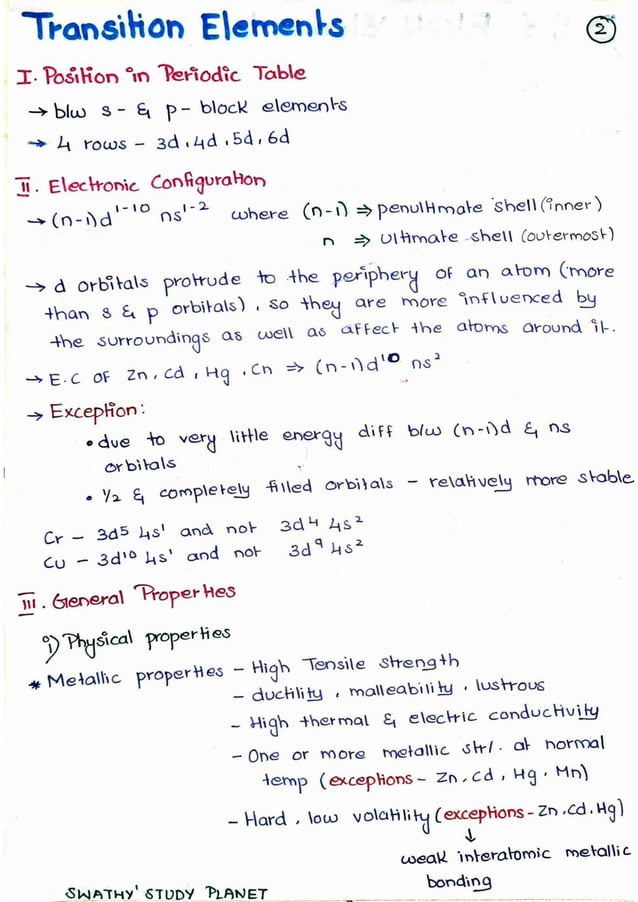 Transition Elements
2
I. Position in Periodic Table
→ b/w s- & p- block elements
→ 4 rows - 3d, 4d, 5d, 6d
II. Electronic Configuration
→ (n-1)d¹⁻¹⁰ ns¹⁻² where (n-1) ⇒ penultimate shell (inner)
n ⇒ ultimate shell (outermost)
→ d orbitals protrude to the periphery of an atom (more
than s & p orbitals), so they are more influenced by
the surroundings as well as affect the atoms around it.
→ E.C of Zn, Cd, Hg, Cn ⇒ (n-1)d¹⁰ ns²
→ Exception:
• due to very little energy diff b/w (n-1)d & ns
orbitals
• ½ & completely filled orbitals - relatively more stable
Cr - 3d⁵ 4s¹ and not 3d⁴ 4s²
Cu - 3d¹⁰ 4s¹ and not 3d⁹ 4s²
III. General Properties
i) Physical properties
* Metallic properties - High Tensile strength
- ductility, malleability, lustrous
- High thermal & electric conductivity
- One or more metallic str/. at normal
temp (exceptions - Zn, Cd, Hg, Mn)
- Hard, low volatility (exceptions - Zn, Cd, Hg)
↓
weak interatomic metallic
bonding
SWATHY' STUDY PLANET